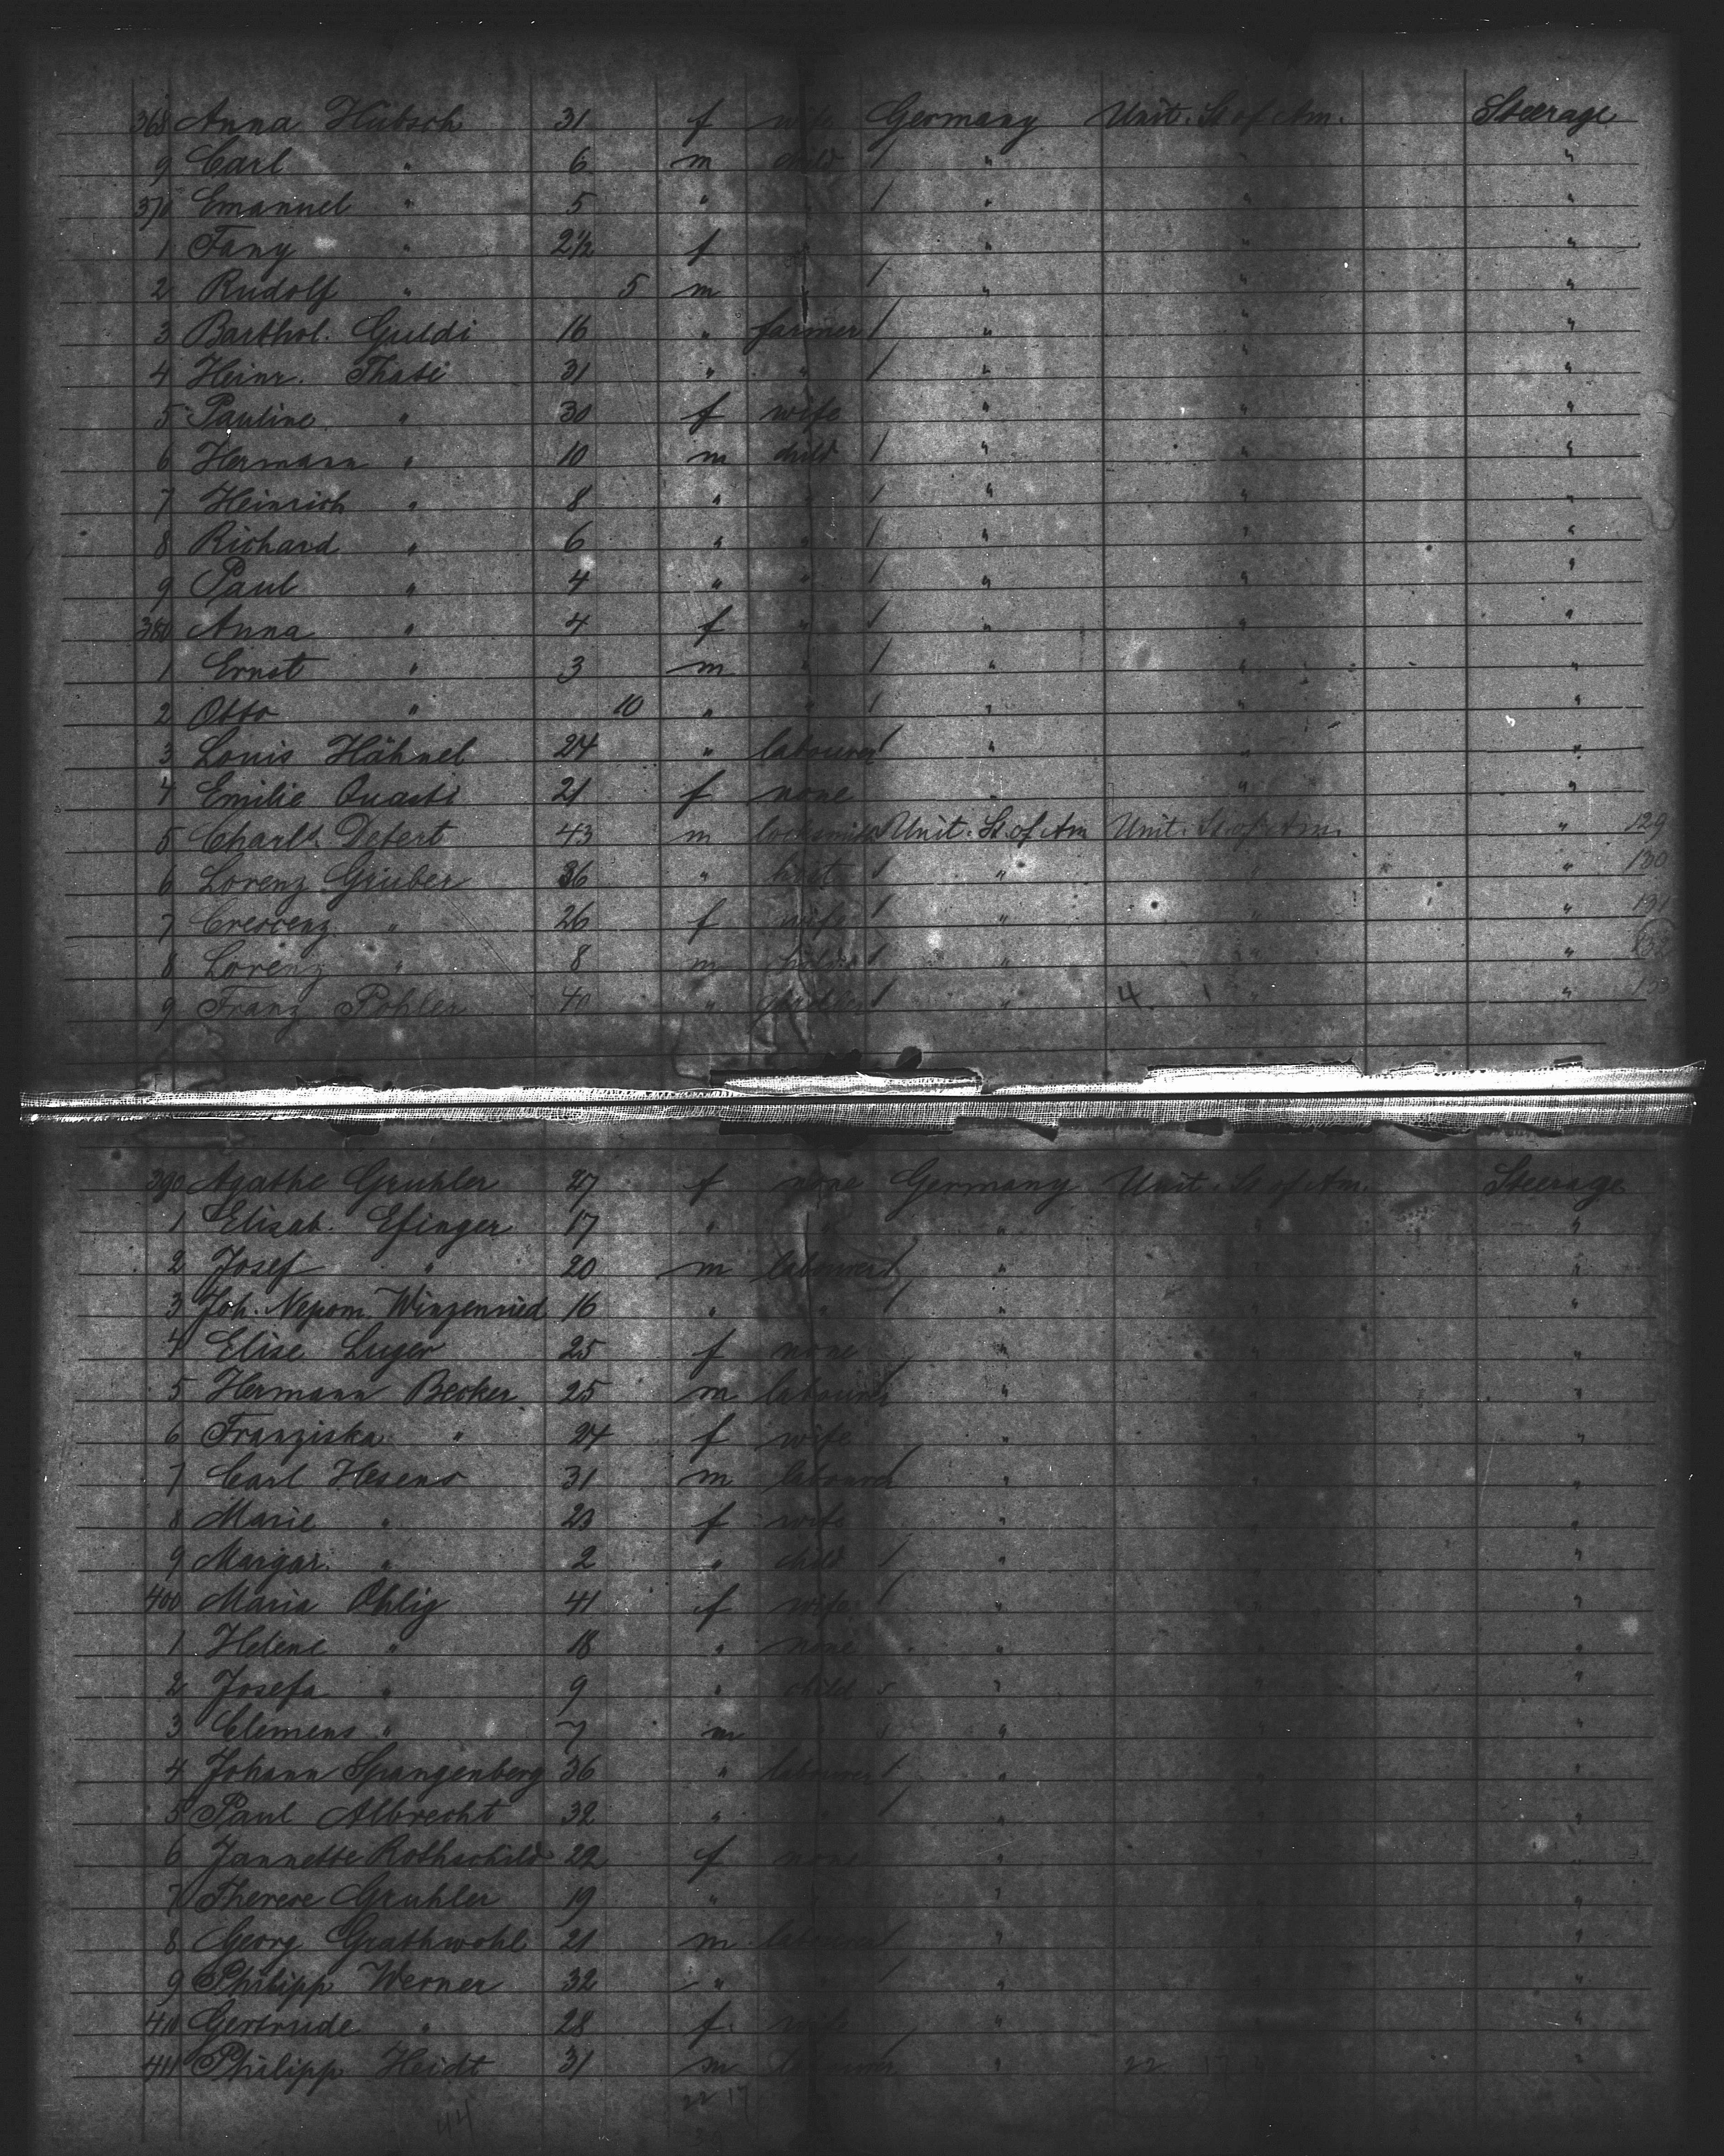 368 Anna Hübsch 31 f wife Germany Unit. St. of Am. Steerage
9 Carl " 6 m child / " " "
370 Emanuel " 5 " " / " " "
1 Fany " 2½ f " " " "
2 Rudolf " 5 m " / " " "
3 Barthol. Guldi 16 " farmer / " " "
4 Heinr. 31 " " / " " "
5 Pauline " 30 f wife " " "
6 Hermann " 10 m child / " " "
7 Heinrich " 8 " " / " " "
8 Richard " 6 " " / " " "
9 Paul " 4 " " / " " "
380 Anna " 4 f " / " " "
1 Ernst " 3 m " / " " "
2 Otto " 10 " " / " " "
3 Louis Hähnel 24 " labourer / " " "
4 Emilie 21 f none " " "
5 Charls. Detert 43 m locksmith Unit. St. of Am Unit. St. of Am. " 129
6 Lorenz Gruber 36 " / " " " 130
7 Crescenz " 26 f wife / " " " 131
8 Lorenz " 8 m child / " " " 132
9 Franz Pohler 40 " / " 4 1 " " 133
390 Agathe Gruhler 27 f none Germany Unit. St. of Am. Steerage
1 Elisab. Efinger 17 " " " " "
2 Josef " 20 m labourer / " " "
3 Joh. Nepom. Winzenried 16 " " / " " "
4 Elise Luger 25 f none " " "
5 Hermann Becker 25 m labourer " " "
6 Franziska " 24 f wife " " "
7 Carl Hesens 31 m labourer " " "
8 Marie " 23 f wife " " "
9 Margar. " 2 " child / " " "
400 Maria Ohlig 41 f wife / " " "
1 Helene " 18 " none " " "
2 Josefa " 9 " child " " "
3 Clemens " 7 m " / " " "
4 Johann Spangenberg 36 " labourer / " " "
5 Paul Albrecht 32 " " / " " "
6 Jannette Rothschild 22 f none " " "
7 Therese Gruhler 19 " " " " "
8 Georg Grathwohl 21 m labourer / " " "
9 Philipp Werner 32 " " / " " "
410 Gertrude " 28 f wife " " "
411 Philipp Heidt 31 m labourer " 22 17 "
22 17
44